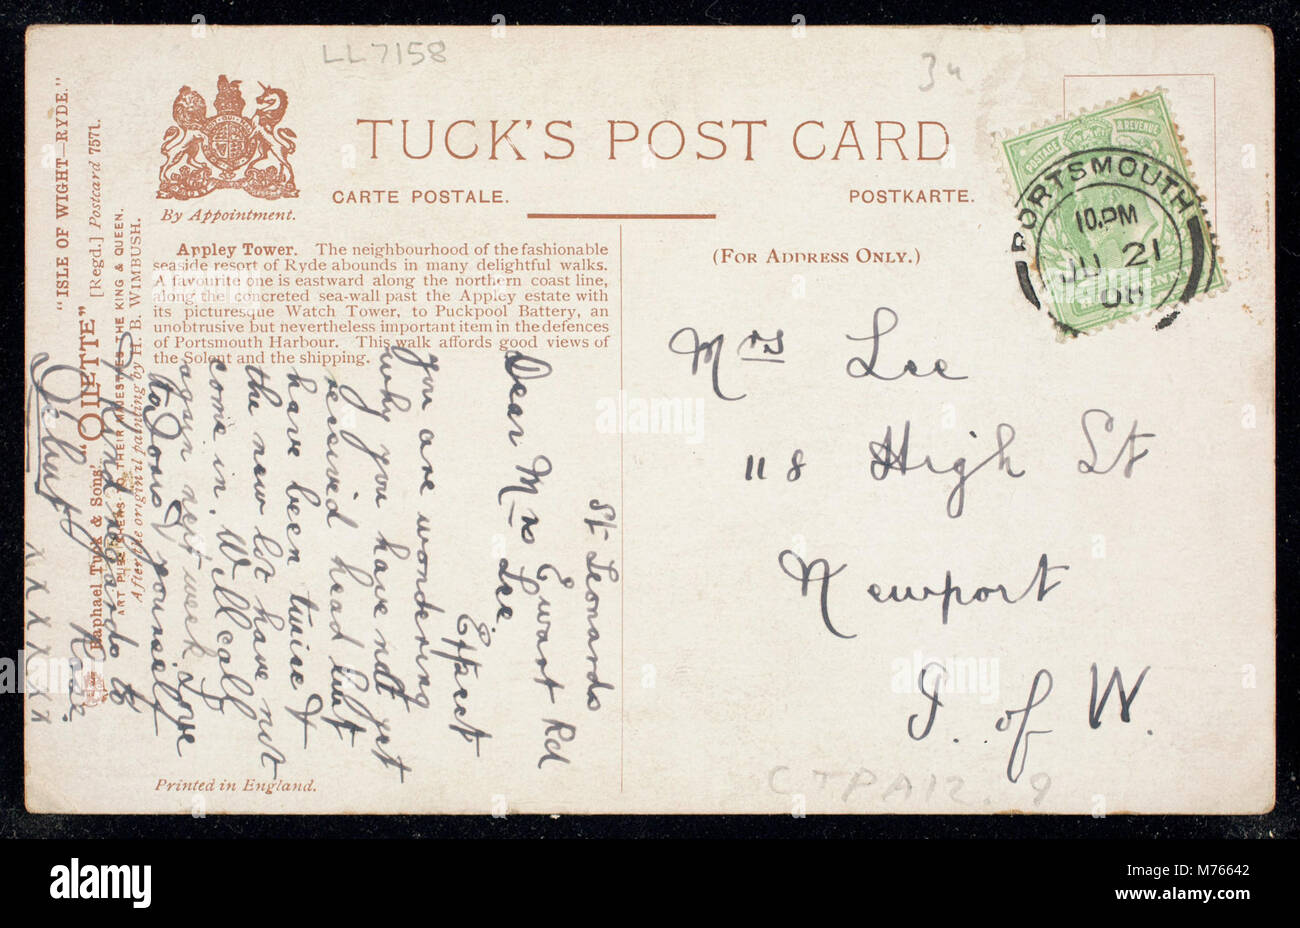 LL7158
3d
TUCK'S POST CARD
CARTE POSTALE.
POSTKARTE.
By Appointment.
(FOR ADDRESS ONLY.)
PORTSMOUTH
10.PM
JU 21
08
POSTAGE & REVENUE
"ISLE OF WIGHT—RYDE."
Raphael Tuck & Sons' "OILETTE" [Regd.] Postcard 7571.
ART PUBLISHERS TO THEIR MAJESTIES THE KING & QUEEN.
After the original painting by H. B. WIMBUSH.
Appley Tower. The neighbourhood of the fashionable
seaside resort of Ryde abounds in many delightful walks.
A favourite one is eastward along the northern coast line,
along the concreted sea-wall past the Appley estate with
its picturesque Watch Tower, to Puckpool Battery, an
unobtrusive but nevertheless important item in the defences
of Portsmouth Harbour. This walk affords good views of
the Solent and the shipping.
St Leonards
Ewart Rd
Dear Mrs Lee
Expect
you are wondering
why you have not yet
received head but
have been twice &
the new lot have not
come in. Will call
again next week Love
to Doris & yourself
Kind regards to
Rose
x x x x x x
Mrs Lee
118 High St
Newport
I. of W.
Printed in England.
CTPA12. 9
alamy
alamy
Image ID: M76642
www.alamy.com